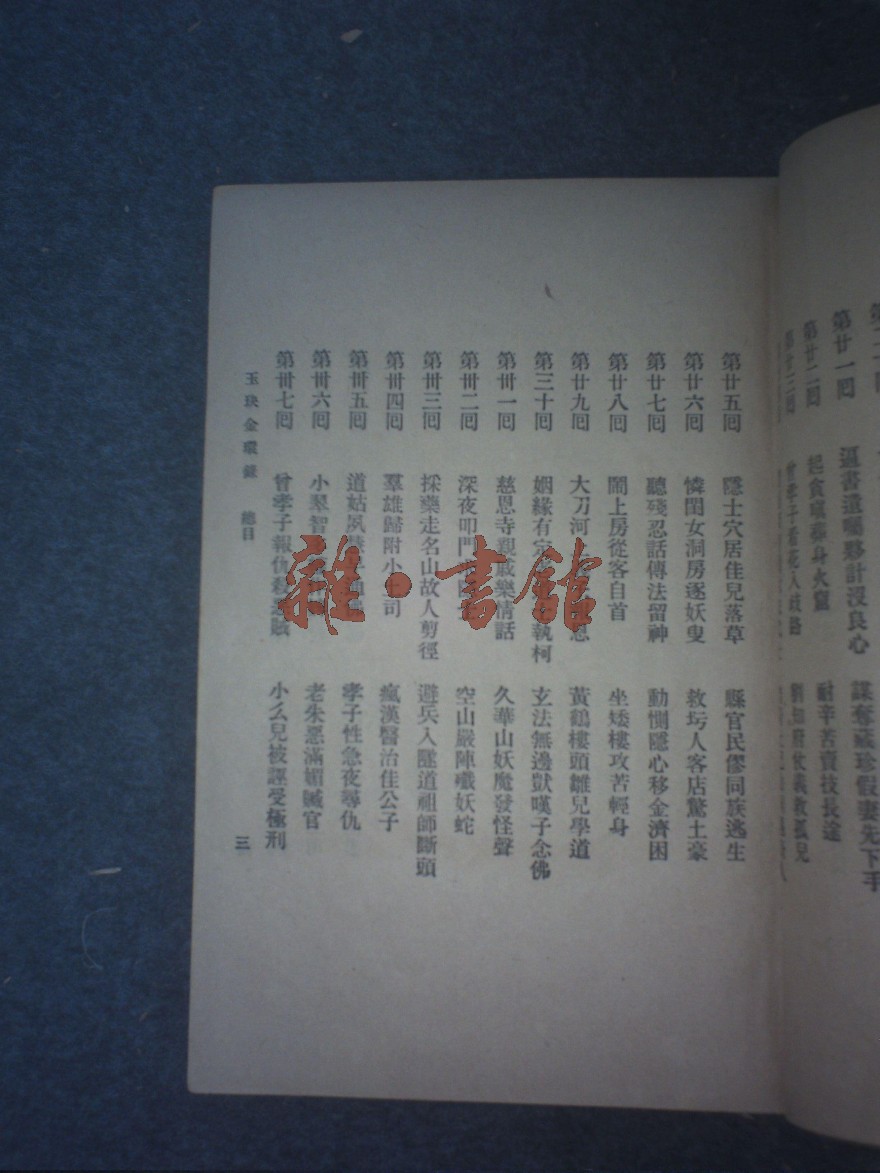 第廿一囘 逼書遺囑夥計沒良心 謀奪藏珍假妻先下手
第廿二囘 起貪嗔葬身火窟 耐辛苦賣技長途
第廿三囘 曾孝子看花入歧路 劉知府仗義救孤兒
第廿五囘 隱士穴居佳兒落草 縣官民僇同族逃生
第廿六囘 憐閨女洞房逐妖叟 救圬人客店驚土豪
第廿七囘 聽殘忍話傳法留神 動惻隱心移金濟困
第廿八囘 鬧上房從客自首 坐矮樓攻苦輕身
第廿九囘 大刀河 黃鶴樓頭雛兒學道
第三十囘 姻緣有定 執柯 玄法無邊獃嘆子念佛
第卅一囘 慈恩寺親戚樂情話 久華山妖魔發怪聲
第卅二囘 深夜叩門 空山嚴陣殲妖蛇
第卅三囘 採藥走名山故人剪徑 避兵入隧道祖師斷頭
第卅四囘 羣雄歸附小土司 瘋漢醫治佳公子
第卅五囘 道姑夙 孝子性急夜尋仇
第卅六囘 小翠智 老朱惡滿媚贓官
第卅七囘 曾孝子報仇殺 賊 小么兒被誣受極刑
玉玦金環錄 總目 三
雜·書館